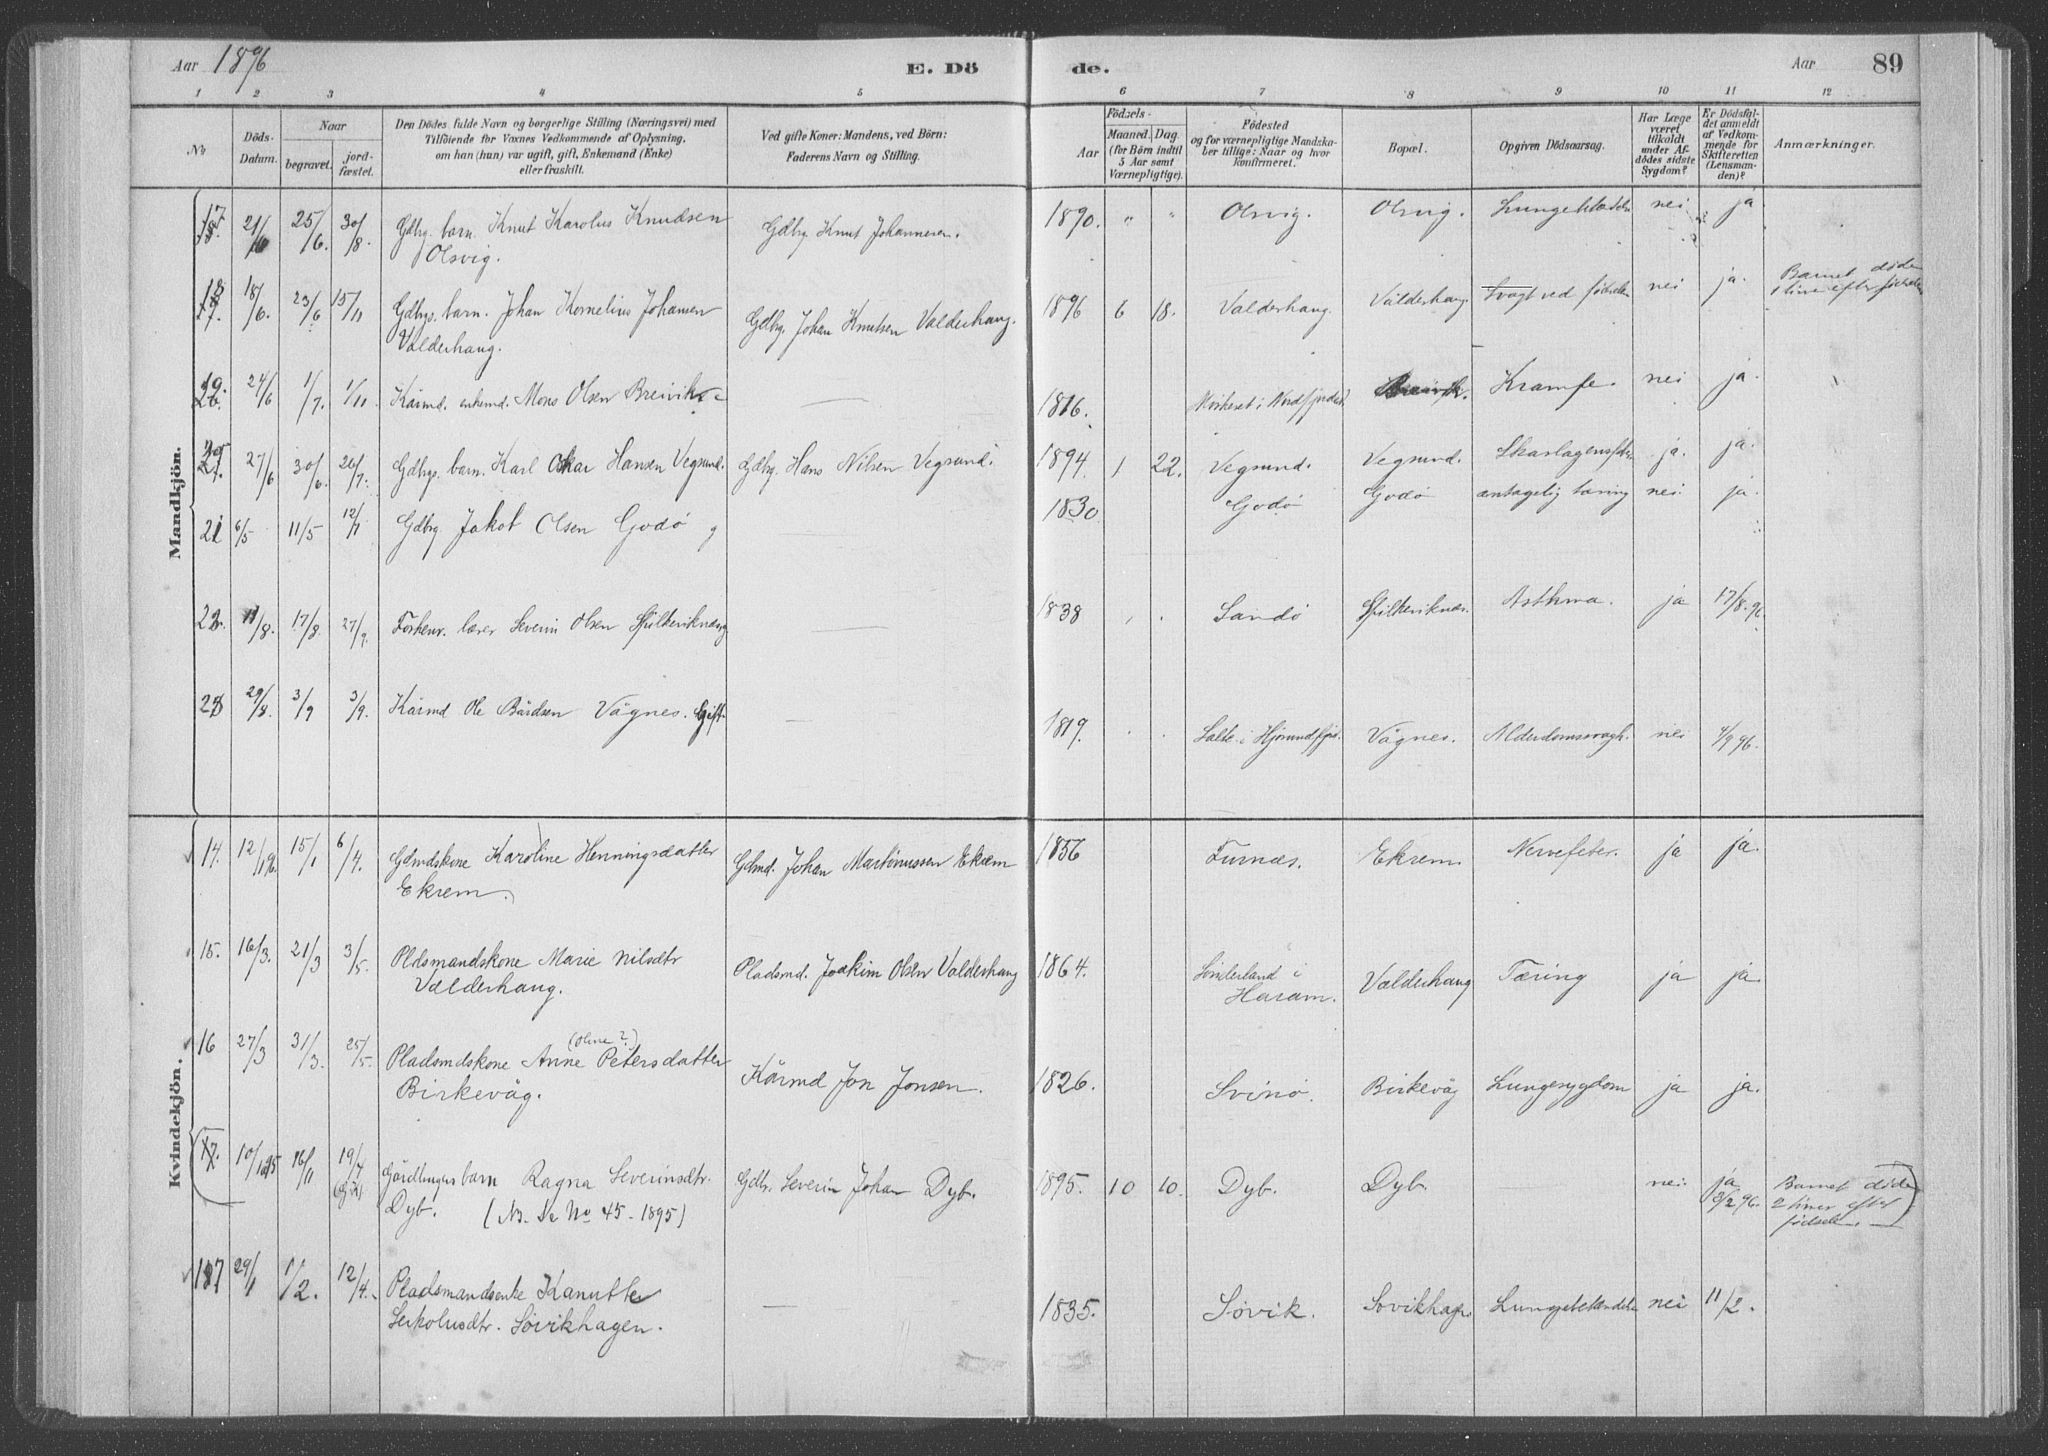 Aar 1896
E. Dö
de.
Aar
89
1 2 3 4 5 6 7 8 9 10 11 12
No
Döds-Datum.
Naar
begravet.
jord-fæstet.
Den Dödes fulde Navn og borgerlige Stilling (Næringsvei) med
Tilföiende for Voxnes Vedkommende af Oplysning,
om han (hun) var ugift, gift, Enkemand (Enke)
eller fraskilt.
Ved gifte Koner: Mandens, ved Börn:
Faderens Navn og Stilling.
Födsels-
Aar
Maaned. Dag.
(for Börn indtil
5 Aar samt
Værnepligtige).
Födested
og for værnepligtige Mandska-
ber tillige: Naar og hvor
konfirmeret.
Bopæl.
Opgiven Dödsaarsag.
Har Læge
været
tilkaldt
under Af-
dödes sidste
Sygdom?
Er Dödsfal-
det anmeldt
af Vedkom-
mende for
Skifteretten
(Lensman-
den)?
Anmærkninger.
Mandkjön.
17 21/6 25/6. 30/8. Gdbg. barn. Knut Karolus Knudsen Gdbg Knut Johannesen. 1890. " " Olsvig. Olsvig. nei ja
Olsvig.
18 18/6. 23/6 15/11 Gdbgs. barn. Johan Kornelius Johansen Gdbg. Johan Knutsen Valderhaug. 1896 6 18. Valderhaug. Valderhaug. Svagt ved fødselen nei ja. Barnet døde
1 time efter fødselen
Valderhaug.
19. 24/6 1/7. 1/11. Kårmd. enkemd. Mons Olsen Breivik 1816. Breivik. Krampe. nei ja.
20 27/6 30/6. 26/7. Gdbgs. barn. Karl Oskar Hansen Vegsund. Gdbg. Hans Nilsen Vegsund. 1894. 1 22. Vegsund. Vegsund. Skarlagensfeber ja. ja.
21 6/5 11/5 12/7 Gdbg Jakob Olsen Godø g 1830 Godø Godø antagelig tæring nei ja.
22. 11/8. 17/8. 27/9. Forhenv. lærer Severin Olsen Spilkeviknæs 1838 Sandø Spilkeviknæs. Asthma. ja 17/8.96.
23 29/8. 3/9 3/9. Kårmd Ole Bårdsen Vågnes. Gift. 1819. Sæbø i Hjørundfjord. Vågnes. Alderdomssvagh. nei 4/9 96.
Kvindekjön.
14. 12/1 96. 15/1 6/4. Gdmdskone Karoline Henningsdatter Gdmd. Johan Martinussen Ekrem 1856 Furnæs. Ekrem. Nervefeber. ja ja.
Ekrem.
15. 16/3. 21/3 3/5. Pldsmandskone Marie Nilsdtr Pladsmd. Joakim Olsen Valderhaug 1864. Sønderland i
Haram. Valderhaug Tæring ja ja.
Valderhaug.
(Oline?)
16 27/3 31/3. 25/5. Pladsmdskone Anne Petersdatter Kårmd Jon Jonsen. 1826. Svinø. Birkevåg Lungesygdom ja ja.
Birkevåg.
17. 10/10 95 16/11 19/7 Gårdbrugers barn Ragna Severinsdtr. Gdbr. Severin Johan Dyb. 1895. 10 10. Dyb. Dyb. nei. ja
3/2 96. Barnet døde
2 timer efter
fødselen.
Dyb. (NB. Se No 45 - 1895)
17 29/1 1/2. 12/4. Pladsmandsenke Kanutte 1835. Søvik. Søvikhagen Lungebetændelse nei 11/2.
Serkolusdtr. Søvikhagen.